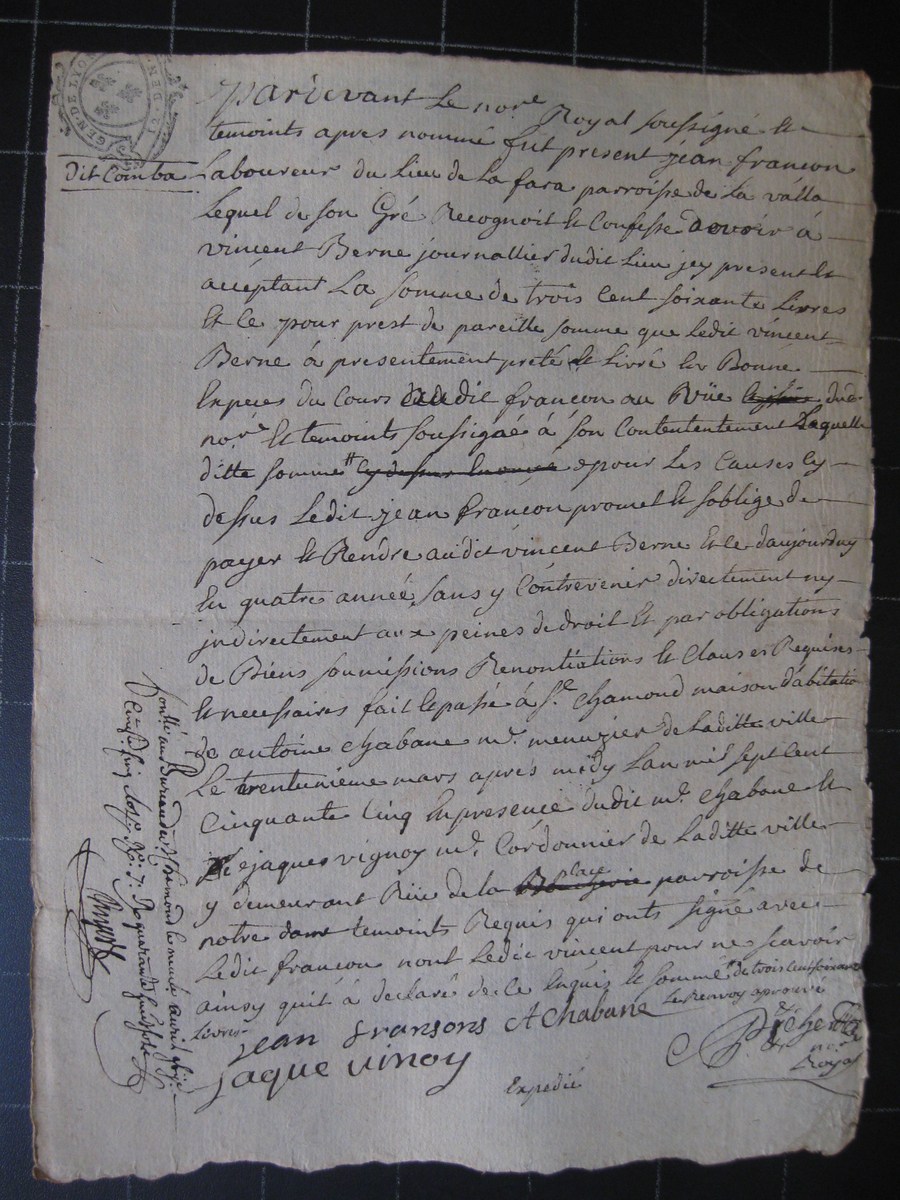 GEN·DE LYO
dit Comba
Pardevant le nore. Royal soussigné et
temoints apres nommé fut present jean françon
Laboureur du Lieu de La fara parroisse de La valla
Lequel de son Gré Recognoit et Confesse devoir à
vincent Berne journallier dudit Lieu jcy present et
acéptant La somme de trois Cent soixante Livres
Et ce pour prest de pareille somme que Ledit vincent
Berne à presentement preté et Livré en Bonne
Especes du Cours audit françon au Vüe dud.
nore. Et temoints soussigné à son Contentement Laquelle
ditte somme cy dessus enoncé pour Les Causes Cy
dessus Ledit jean françon promet et soblige de
payer et Rendre audit vincent Berne Et ce daujourdhuy
En quatre année sans y Contrevenir directement ny
jndirectement aux peines de droit Et par obligations
de Biens soumissions Renontiations et Clauses Requises
et necessaires fait et passé à St. Chamond maison d'abitation
de antoine Chabane me. menuzier de Laditte ville
Le trentunieme mars après midy Lan mil sept Cent
Cinquante Cinq En presence dudit me. Chabane et
jaques vignoy me. Cordonnier de Laditte ville
y demeurant Rüe de la parroisse de
notre dame temoints Requis qui onts signé avec
Ledit françon nont Ledit vincent pour ne scavoir
ainsy quit à declaré de ce Enquis et sommé de trois Cent soixante
Livres Le Renvoy aprouvé
jean fransons A Chabane
jaque vinoy
nore.
Royal
Expedié